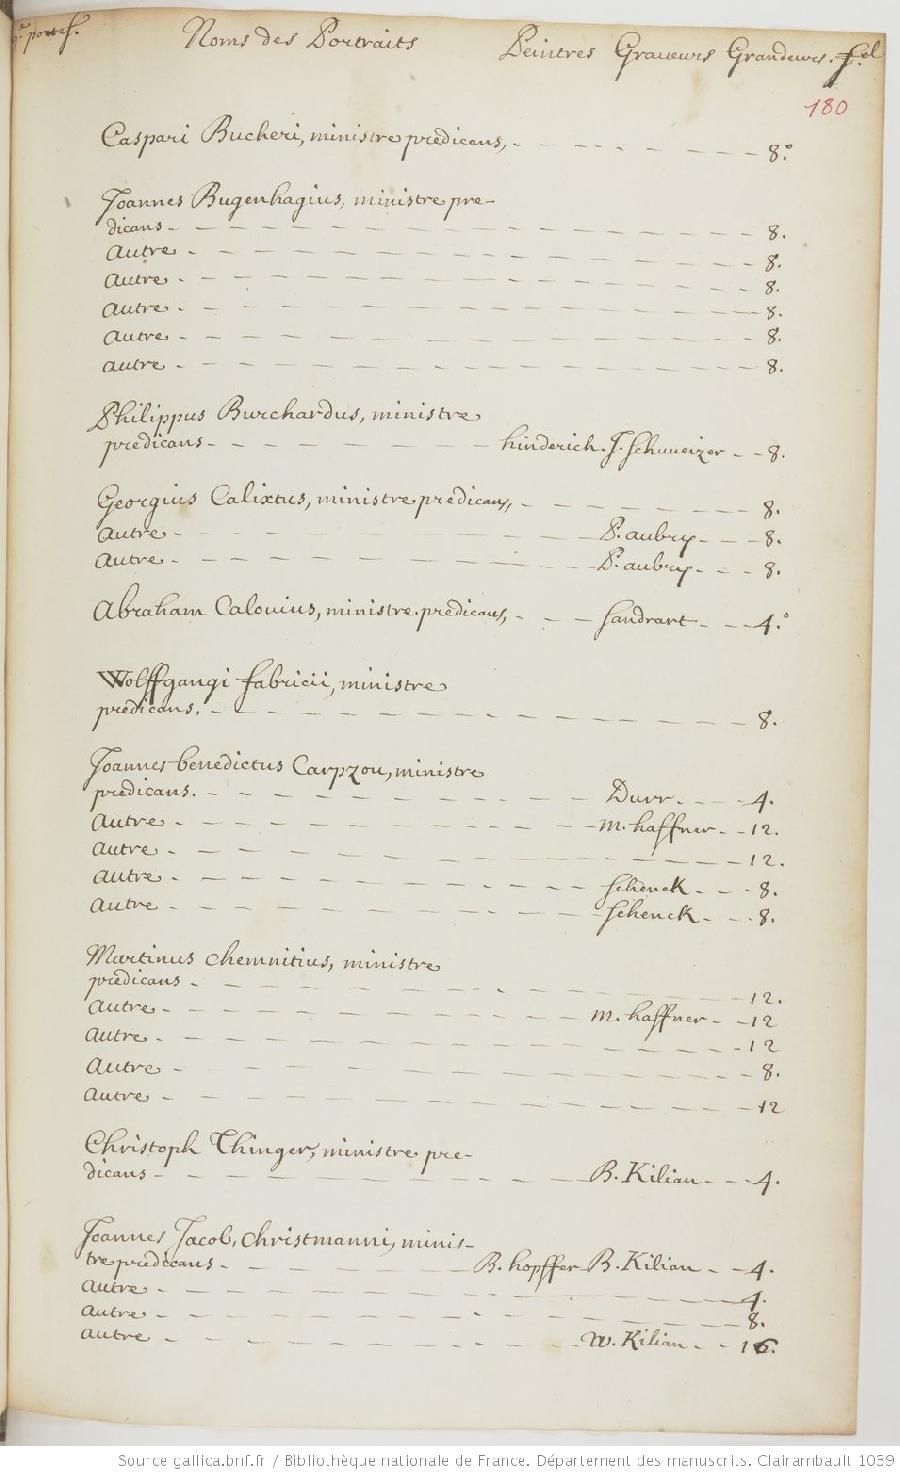 portef. Noms des Portraits Peintres Graveurs Grandeurs. fol
180
Caspari Bucheri, ministre predicans, 8.°
Joannes Bugenhagius, ministre pre-
dicans 8.
autre 8.
autre 8.
autre 8.
autre 8.
autre 8.
Philippus Burchardus, ministre
predicans hinderich. J. Schuveizer 8.
Georgius Calixtus, ministre predicans, 8.
autre P. aubry 8.
autre P. aubry 8.
Abraham Calovius, ministre predicans, Sandrart 4.°
Wolffgangi fabricii, ministre
predicans. 8.
Joannes benedictus Carpzou, ministre
predicans. Durr. 4.
autre m. haffner 12.
autre 12.
autre Schenck 8.
autre Schenck 8.
Martinus Chemnitius, ministre
predicans 12.
autre m. haffner 12
autre 12
autre 8.
autre 12
Christoph Thinger, ministre pre-
dicans B. Kilian 4.
Joannes Jacob, Christmanni, minis-
tre predicans B. hopffer B. Kilian 4.
autre 4.
autre 8.
autre W. Kilian 16.
Source gallica.bnf.fr / Bibliothèque nationale de France. Département des manuscrits. Clairambault 1039